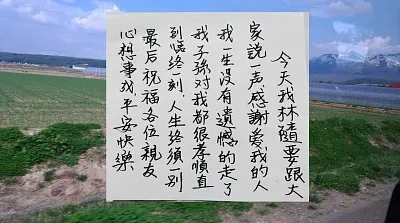 今天我林随要跟大
家説一声感謝爱我的人
我一生没有遺憾的走了
我子孫对我都很孝順直
到临终一刻人生终須一别
最后祝福各位親友
心想事成平安快樂